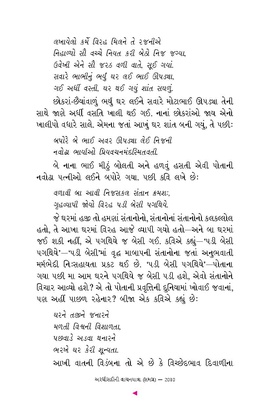 લખાયેલો કર્મે વિરહ મિલને તે રજનીએ
નિહાળ્યો સૌ વચ્ચે નિયત કરી બેઠો નિજ જગ્યા,
ઉવેખી એને સૌ જરઠ વળી વાતે, સૂઈ ગયાં.
સવારે ભાભીનું ભર્યું ઘર લઈ ભાઈ ઊપડ્યા,
ગઈ અર્ધી વસ્તી, ઘર થઈ ગયું શાંત સઘળું.
છોકરાં-છૈયાંવાળું ભર્યું ઘર લઈને સવારે મોટાભાઈ ઊપડ્યા તેની
સાથે જાણે અર્ધી વસતિ ખાલી થઈ ગઈ. નાનાં છોકરાંઓ જાય એનો
ખાલીપો વધારે સાલે. એમના જતાં આખું ઘર શાંત બની ગયું, તે પછી:
બપોરે બે ભાઈ અવર ઊપડ્યા લેઈ નિજની
નવોઢા ભાર્યાઓ પ્રિયવચનમંદસ્મિતવતી.
બે નાના ભાઈ મીઠું બોલતી અને હળવું હસતી એવી પોતાની
નવોઢા પત્નીઓ લઈને બપોરે ગયા. પછી કવિ લખે છે:
વળાવી બા આવી નિજસકલ સંતાન ક્રમશઃ,
ગૃહવ્યાપી જોયો વિરહ પડી બેસી પગથિયે.
જે ઘરમાં હજી તો હમણાં સંતાનોનો, સંતાનોનાં સંતાનોનો કલકલોલ
હતો, તે આખા ઘરમાં વિરહ આજે વ્યાપી ગયો હતો—અને બા ઘરમાં
જઈ શકી નહીં, એ પગથિયે જ બેસી ગઈ. કવિએ કહ્યું—‘પડી બેસી
પગથિયે’—‘પડી બેસી’માં વૃદ્ધ માબાપની સંતાનોના જતાં અનુભવાતી
મર્મભેદી નિઃસહાયતા પ્રકટ થઈ છે. ‘પડી બેસી પગથિયે’—પોતાના
ગયા પછી મા આમ ઘરને પગથિયે જ બેસી પડી હશે, એવો સંતાનોને
વિચાર આવ્યો હશે? એ તો પોતાની પ્રવૃત્તિની દુનિયામાં ખોવાઈ જવાનાં,
પણ અહીં પાછળ રહેનાર? બીજા એક કવિએ કહ્યું છે:
ઘરને તજીને જનારને
મળતી વિશ્વની વિશાળતા,
પછવાડે અડવા થનારને
ભરખે ઘર કેરી શૂન્યતા.
આખી વાતની વિડંબના તો એ છે કે વિચ્છેદભાવ દિવાળીના